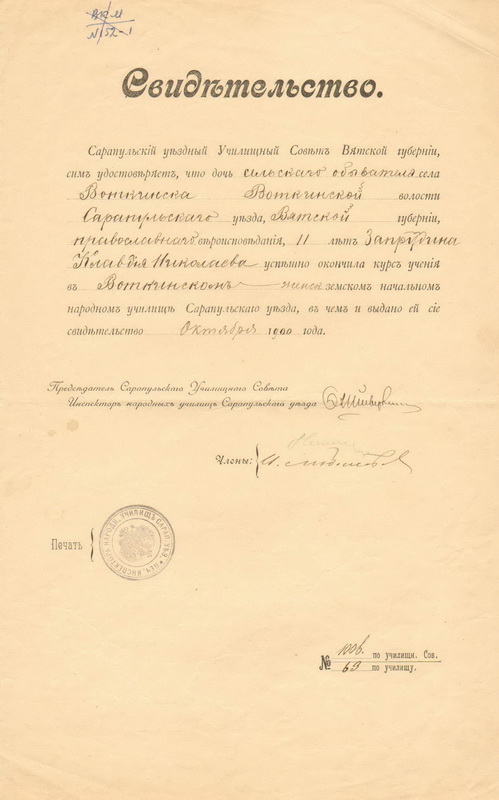 ВКМ
N 52-1
Свидѣтельство.
Сарапульскій уѣздный Училищный Совѣтъ Вятской губерніи,
симъ удостовѣряетъ, что дочь сельскаго обывателя села
Воткинска Воткинской волости
Сарапульскаго уѣзда, Вятской губерніи,
православнаго вѣроисповѣданія, 11 лѣтъ
Клавдія Николаева успѣшно окончила курсъ ученія
въ Воткинскомъ женск земскомъ начальномъ
народномъ училищѣ Сарапульскаго уѣзда, въ чемъ и выдано ей сіе
свидѣтельство Октября 1900 года.
Предсѣдатель Сарапульскаго Училищнаго Совѣта
Инспекторъ народныхъ училищъ Сарапульскаго уѣзда
Члены:
Печать
№ по училищн. Сов.
63 по училищу.